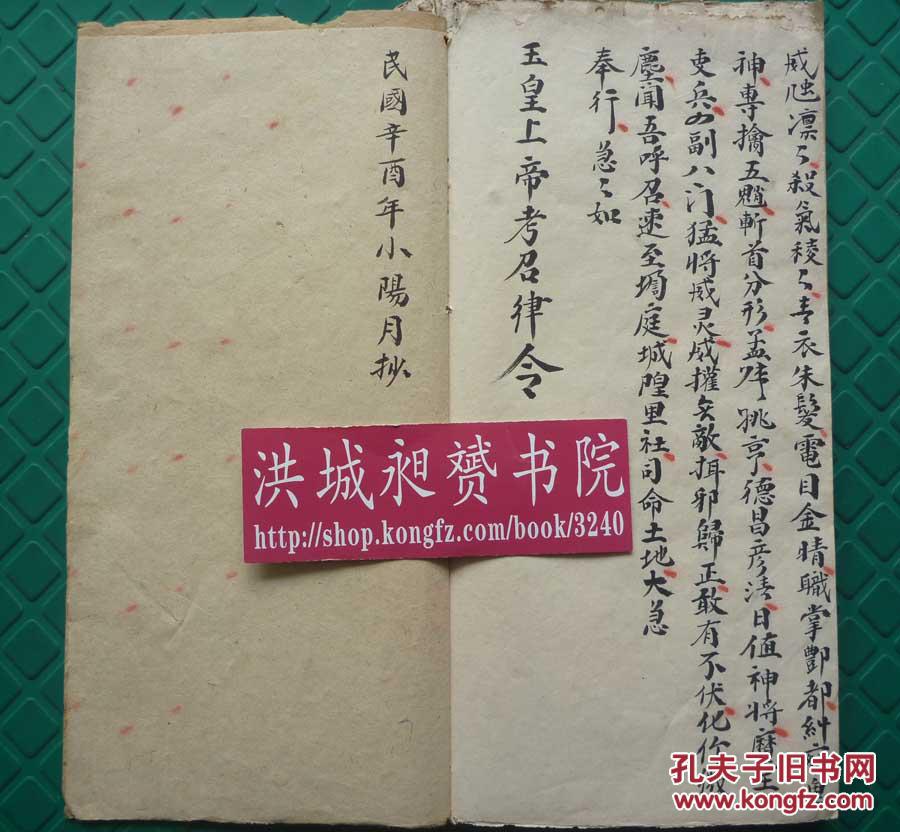 威 凛々殺氣稜々青衣朱髮電目金睛職掌酆都糾
神專擒五 斬首分形孟 姚亨德昌彦清日值神將
吏兵四副八门猛將威灵威權 敵 邪歸正敢有不伏化 微
塵聞吾呼召速至壇庭城隍里社司命土地大急
奉行急々如
玉皇上帝考召律令
民國辛酉年小陽月抄
洪城昶赟书院
http://shop.kongfz.com/book/3240
孔夫子旧书网
www.kongfz.com